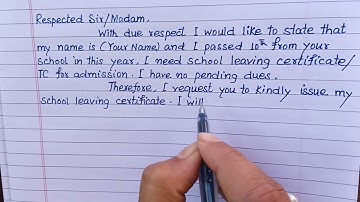 Respected Sir/Madam,
With due respect I would like to state that
my name is (Your Name) and I passed 10th from your
school in this year. I need school leaving certificate/
TC for admission. I have no pending dues.
Therefore, I request you to kindly issue my
school leaving certificate. I will